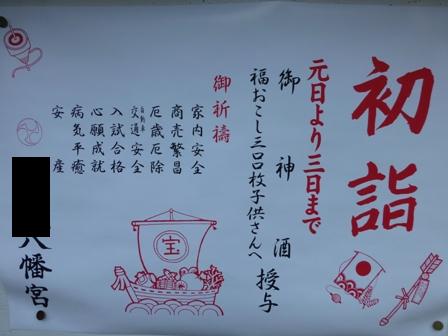 初詣
元日より三日まで
御神酒
福おこし三口枚子供さんへ
授与
御祈禱
家内安全
商売繁昌
厄歳厄除
自動車
交通安全
入試合格
心願成就
病気平癒
安産
八幡宮
宝